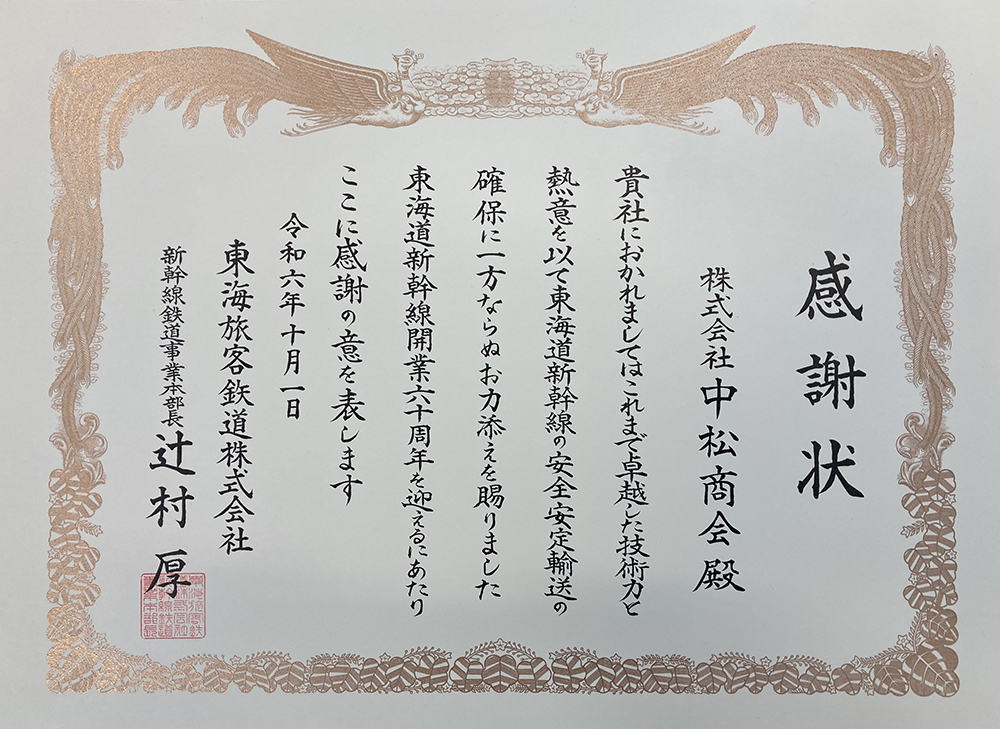 感謝状
株式会社 中松商会 殿
貴社におかれましてはこれまで卓越した技術力と
熱意を以て東海道新幹線の安全安定輸送の
確保に一方ならぬお力添えを賜りました
東海道新幹線開業六十周年を迎えるにあたり
ここに感謝の意を表します
令和六年十月一日
東海旅客鉄道株式会社
新幹線鉄道事業本部長 辻村 厚